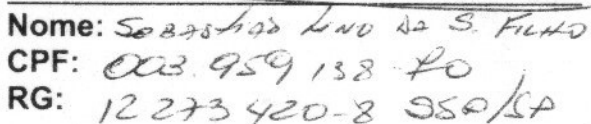 Nome: Sebastião Lino da S. Filho
CPF: 003.959138-70
RG: 12273420-8 SSP/SP